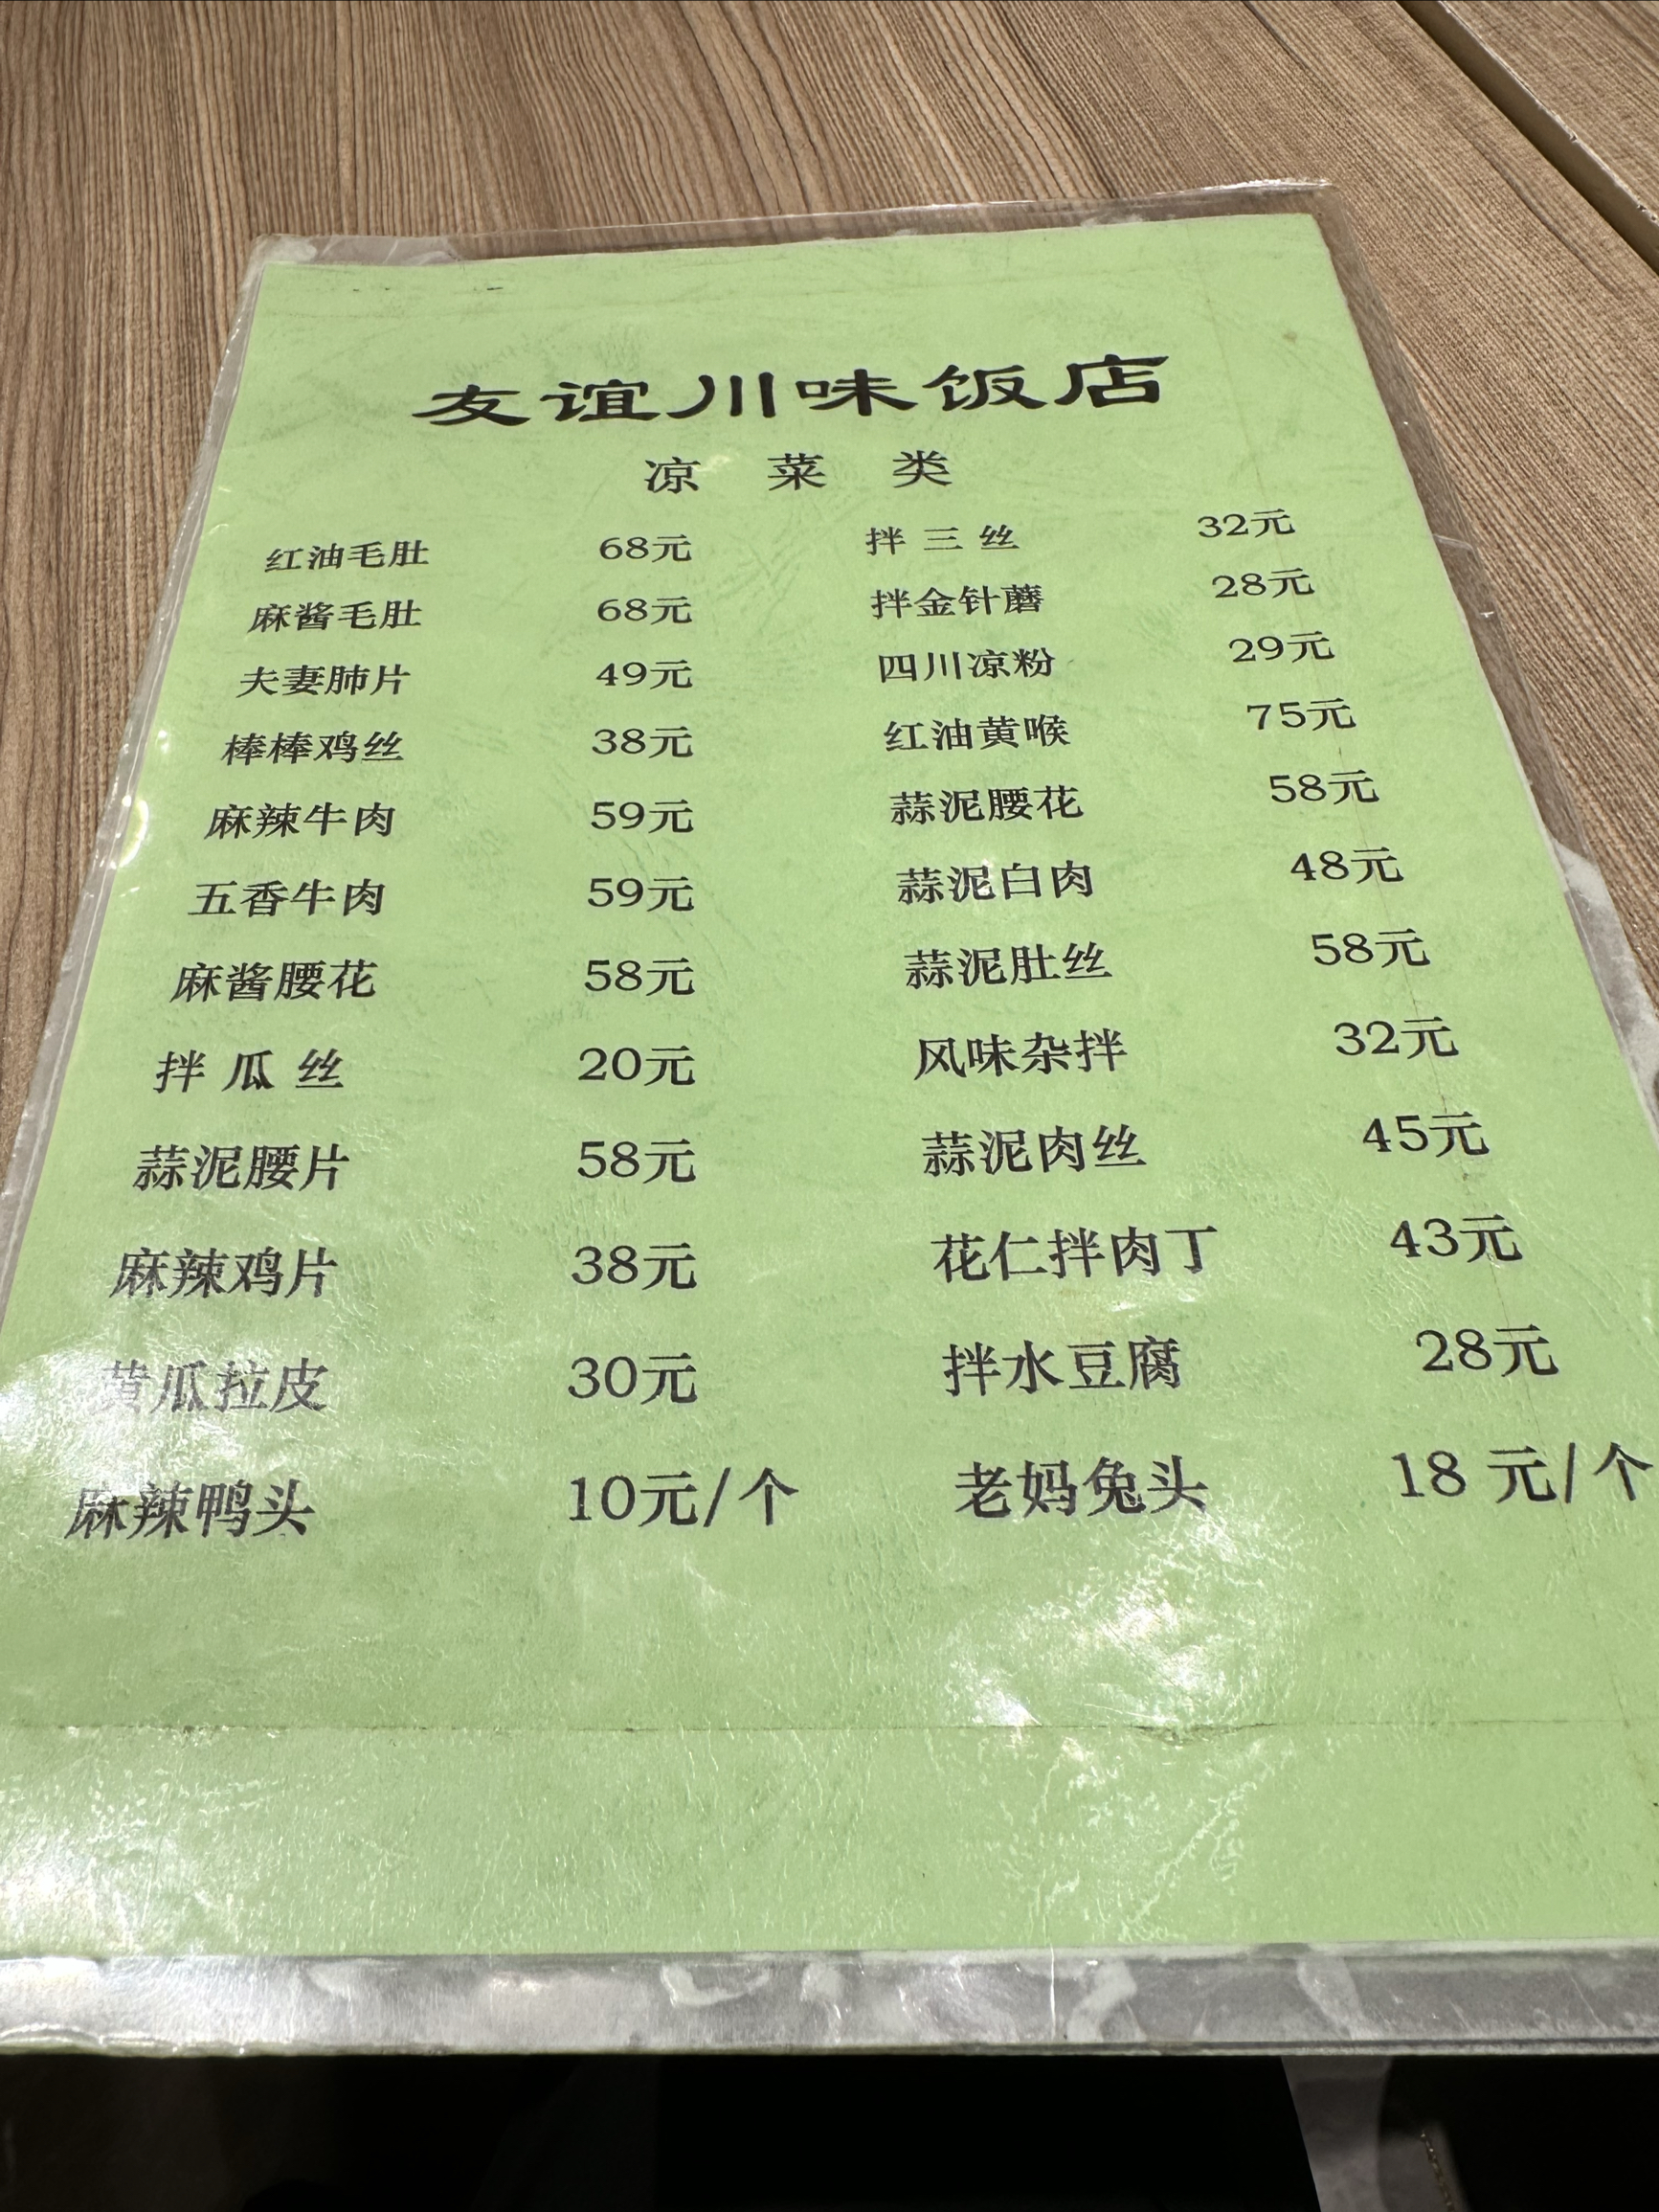 友谊川味饭店
凉 菜 类
红油毛肚 68元 拌 三 丝 32元
麻酱毛肚 68元 拌金针蘑 28元
夫妻肺片 49元 四川凉粉 29元
棒棒鸡丝 38元 红油黄喉 75元
麻辣牛肉 59元 蒜泥腰花 58元
五香牛肉 59元 蒜泥白肉 48元
麻酱腰花 58元 蒜泥肚丝 58元
拌 瓜 丝 20元 风味杂拌 32元
蒜泥腰片 58元 蒜泥肉丝 45元
麻辣鸡片 38元 花仁拌肉丁 43元
黄瓜拉皮 30元 拌水豆腐 28元
麻辣鸭头 10元/个 老妈兔头 18 元/个